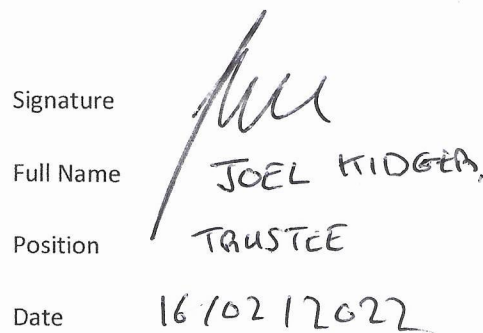 Signature
Full Name JOEL KIDGER
Position TRUSTEE
Date 16/02/2022